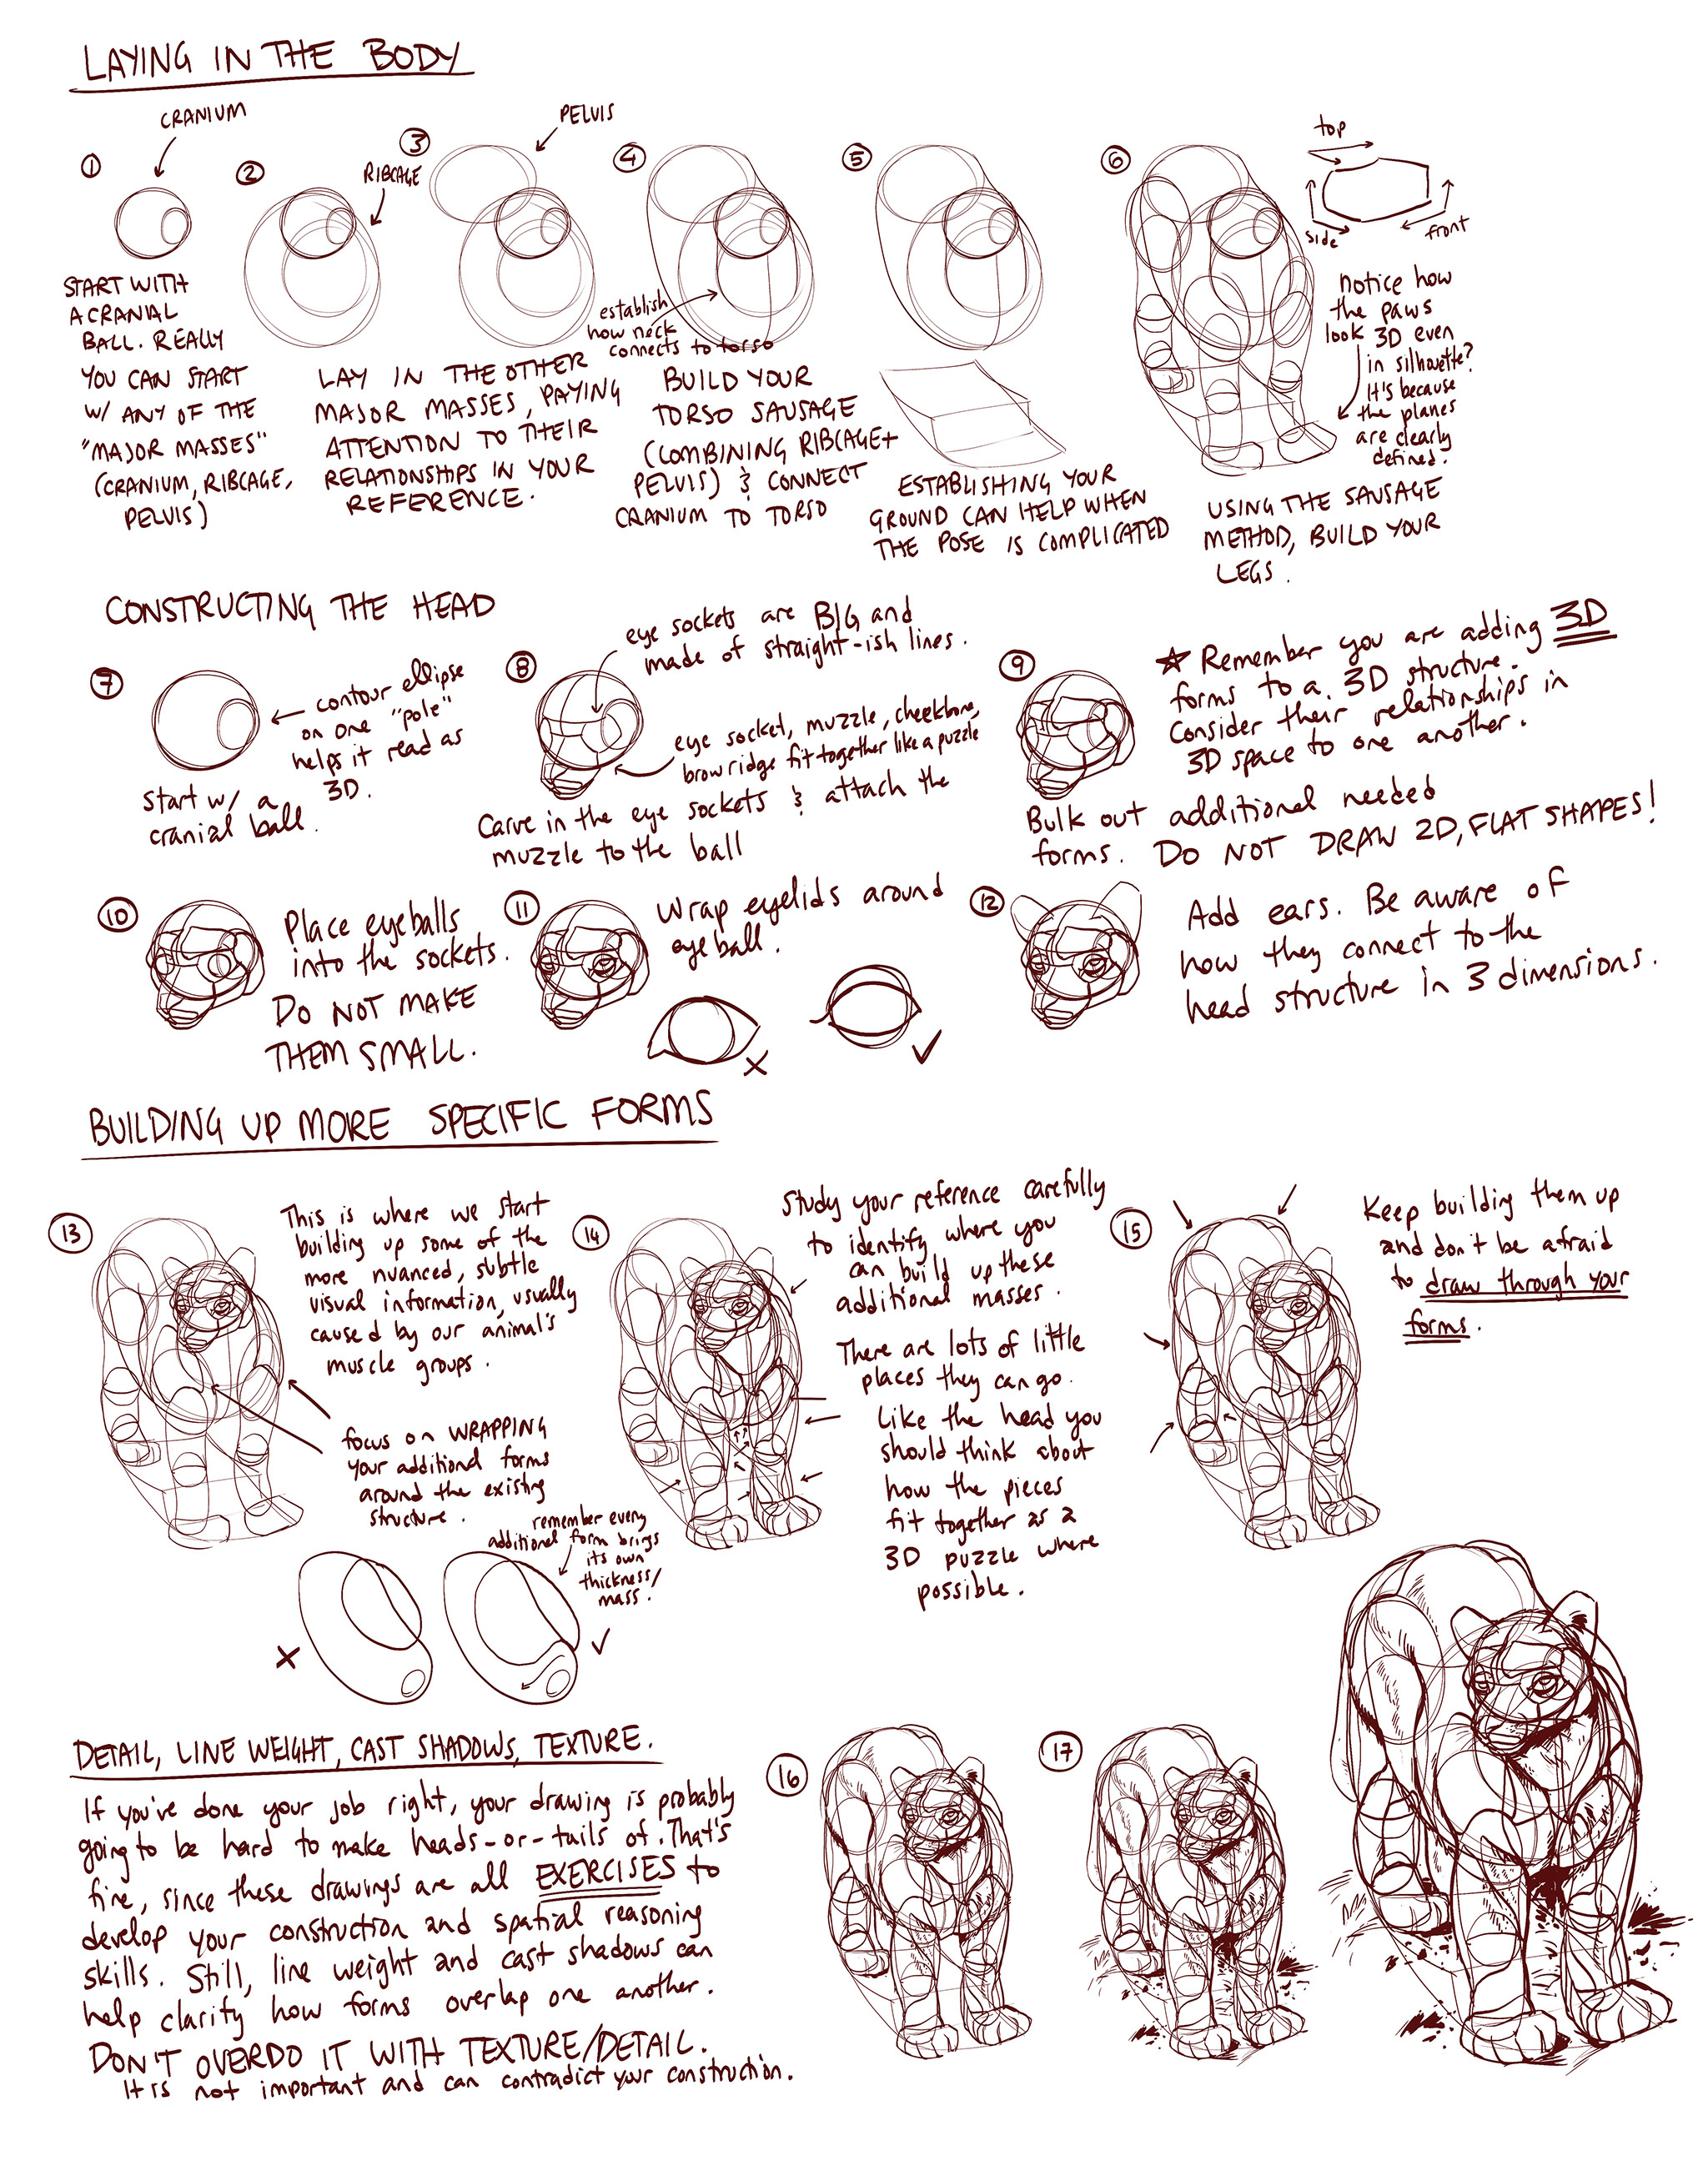 LAYING IN THE BODY
CRANIUM
1
START WITH
A CRANIAL
BALL. REALLY
YOU CAN START
W/ ANY OF THE
"MAJOR MASSES"
(CRANIUM, RIBCAGE,
PELVIS)
2
RIBCAGE
3
PELVIS
LAY IN THE OTHER
MAJOR MASSES, PAYING
ATTENTION TO THEIR
RELATIONSHIPS IN YOUR
REFERENCE.
4
establish
how neck
connects to torso
BUILD YOUR
TORSO SAUSAGE
(COMBINING RIBCAGE+
PELVIS) & CONNECT
CRANIUM TO TORSO
5
ESTABLISHING YOUR
GROUND CAN HELP WHEN
THE POSE IS COMPLICATED
6
top
side
front
notice how
the paws
look 3D even
in silhouette?
It's because
the planes
are clearly
defined.
USING THE SAUSAGE
METHOD, BUILD YOUR
LEGS.
CONSTRUCTING THE HEAD
7
contour ellipse
on one "pole"
helps it read as
3D.
Start w/ a
cranial ball.
8
eye sockets are BIG and
made of straight-ish lines.
eye socket, muzzle, cheekbone,
brow ridge fit together like a puzzle
Carve in the eye sockets & attach the
muzzle to the ball
9
★ Remember you are adding 3D
forms to a 3D structure.
Consider their relationships in
3D space to one another.
Bulk out additional needed
forms. DO NOT DRAW 2D, FLAT SHAPES!
10
Place eyeballs
into the sockets.
DO NOT MAKE
THEM SMALL.
11
Wrap eyelids around
eyeball.
12
Add ears. Be aware of
how they connect to the
head structure in 3 dimensions.
BUILDING UP MORE SPECIFIC FORMS
13
This is where we start
building up some of the
more nuanced, subtle
visual information, usually
caused by our animal's
muscle groups.
focus on WRAPPING
your additional forms
around the existing
structure.
remember every
additional form brings
its own
thickness/
mass.
14
Study your reference carefully
to identify where you
can build up these
additional masses.
There are lots of little
places they can go.
Like the head you
should think about
how the pieces
fit together as a
3D puzzle where
possible.
15
Keep building them up
and don't be afraid
to draw through your
forms.
DETAIL, LINE WEIGHT, CAST SHADOWS, TEXTURE.
If you've done your job right, your drawing is probably
going to be hard to make heads-or-tails of. That's
fine, since these drawings are all EXERCISES to
develop your construction and spatial reasoning
skills. Still, line weight and cast shadows can
help clarify how forms overlap one another.
DON'T OVERDO IT WITH TEXTURE/DETAIL.
It is not important and can contradict your construction.
16
17